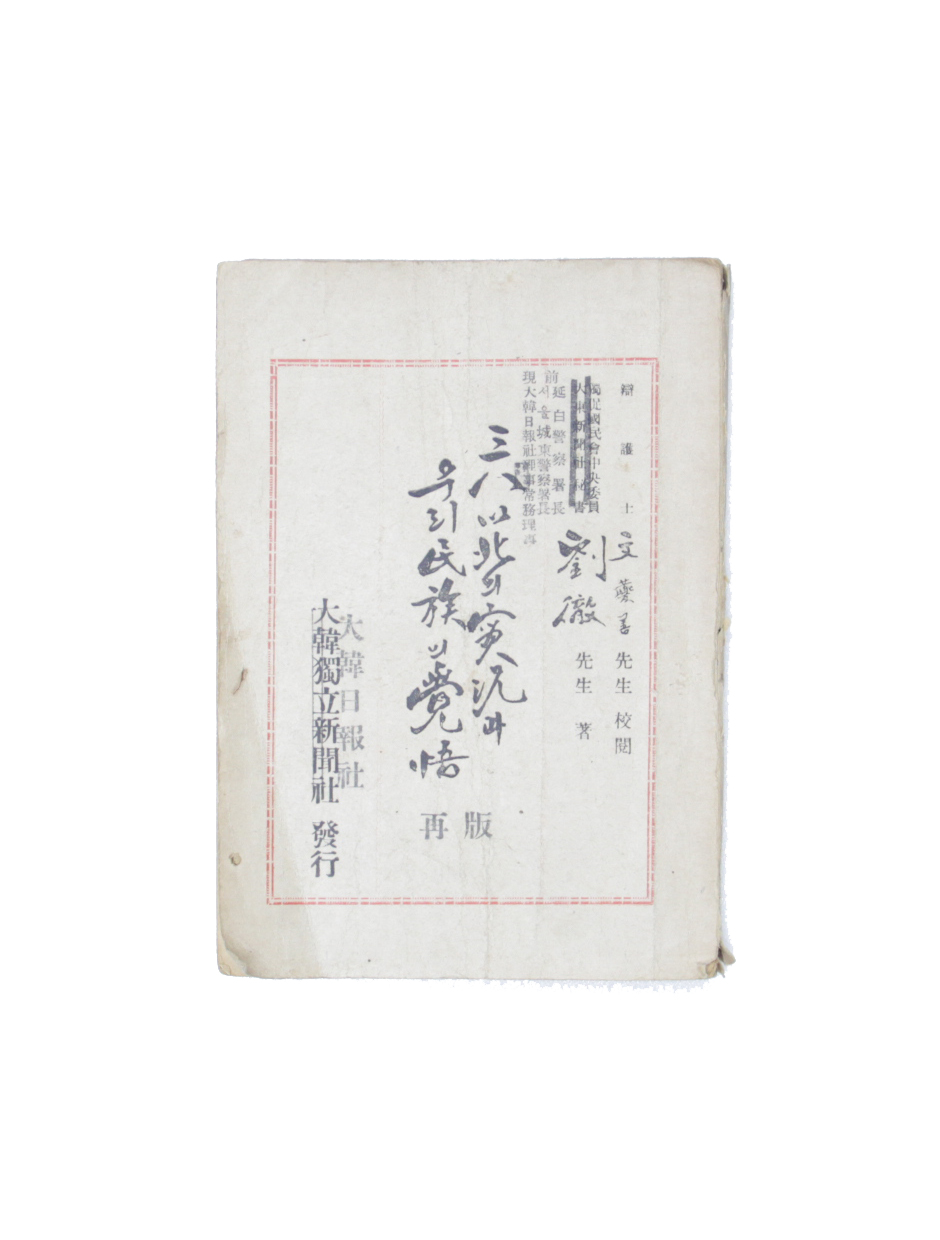 辯護士 文 善 先生 校閱
獨立國民會中央委員
大東新聞社 書
劉徹 先生 著
前 延白警察署長
서울城東警察署長
現大韓日報社理事常務理事
三八以北의 實況과
우리民族의 覺悟
再版
大韓日報社
大韓獨立新聞社 發行